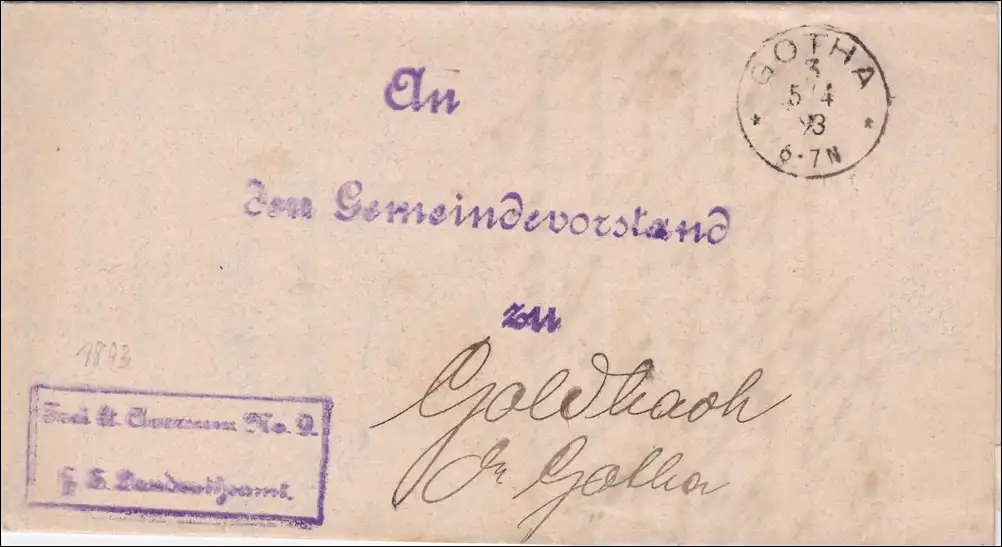 GOTHA
3
5/4
93
6-7N
An
den Gemeindevorstand
zu
Goldbach
Gotha
1893
Frei lt. Aversum No. 9.
H. S. Landrathsamt.